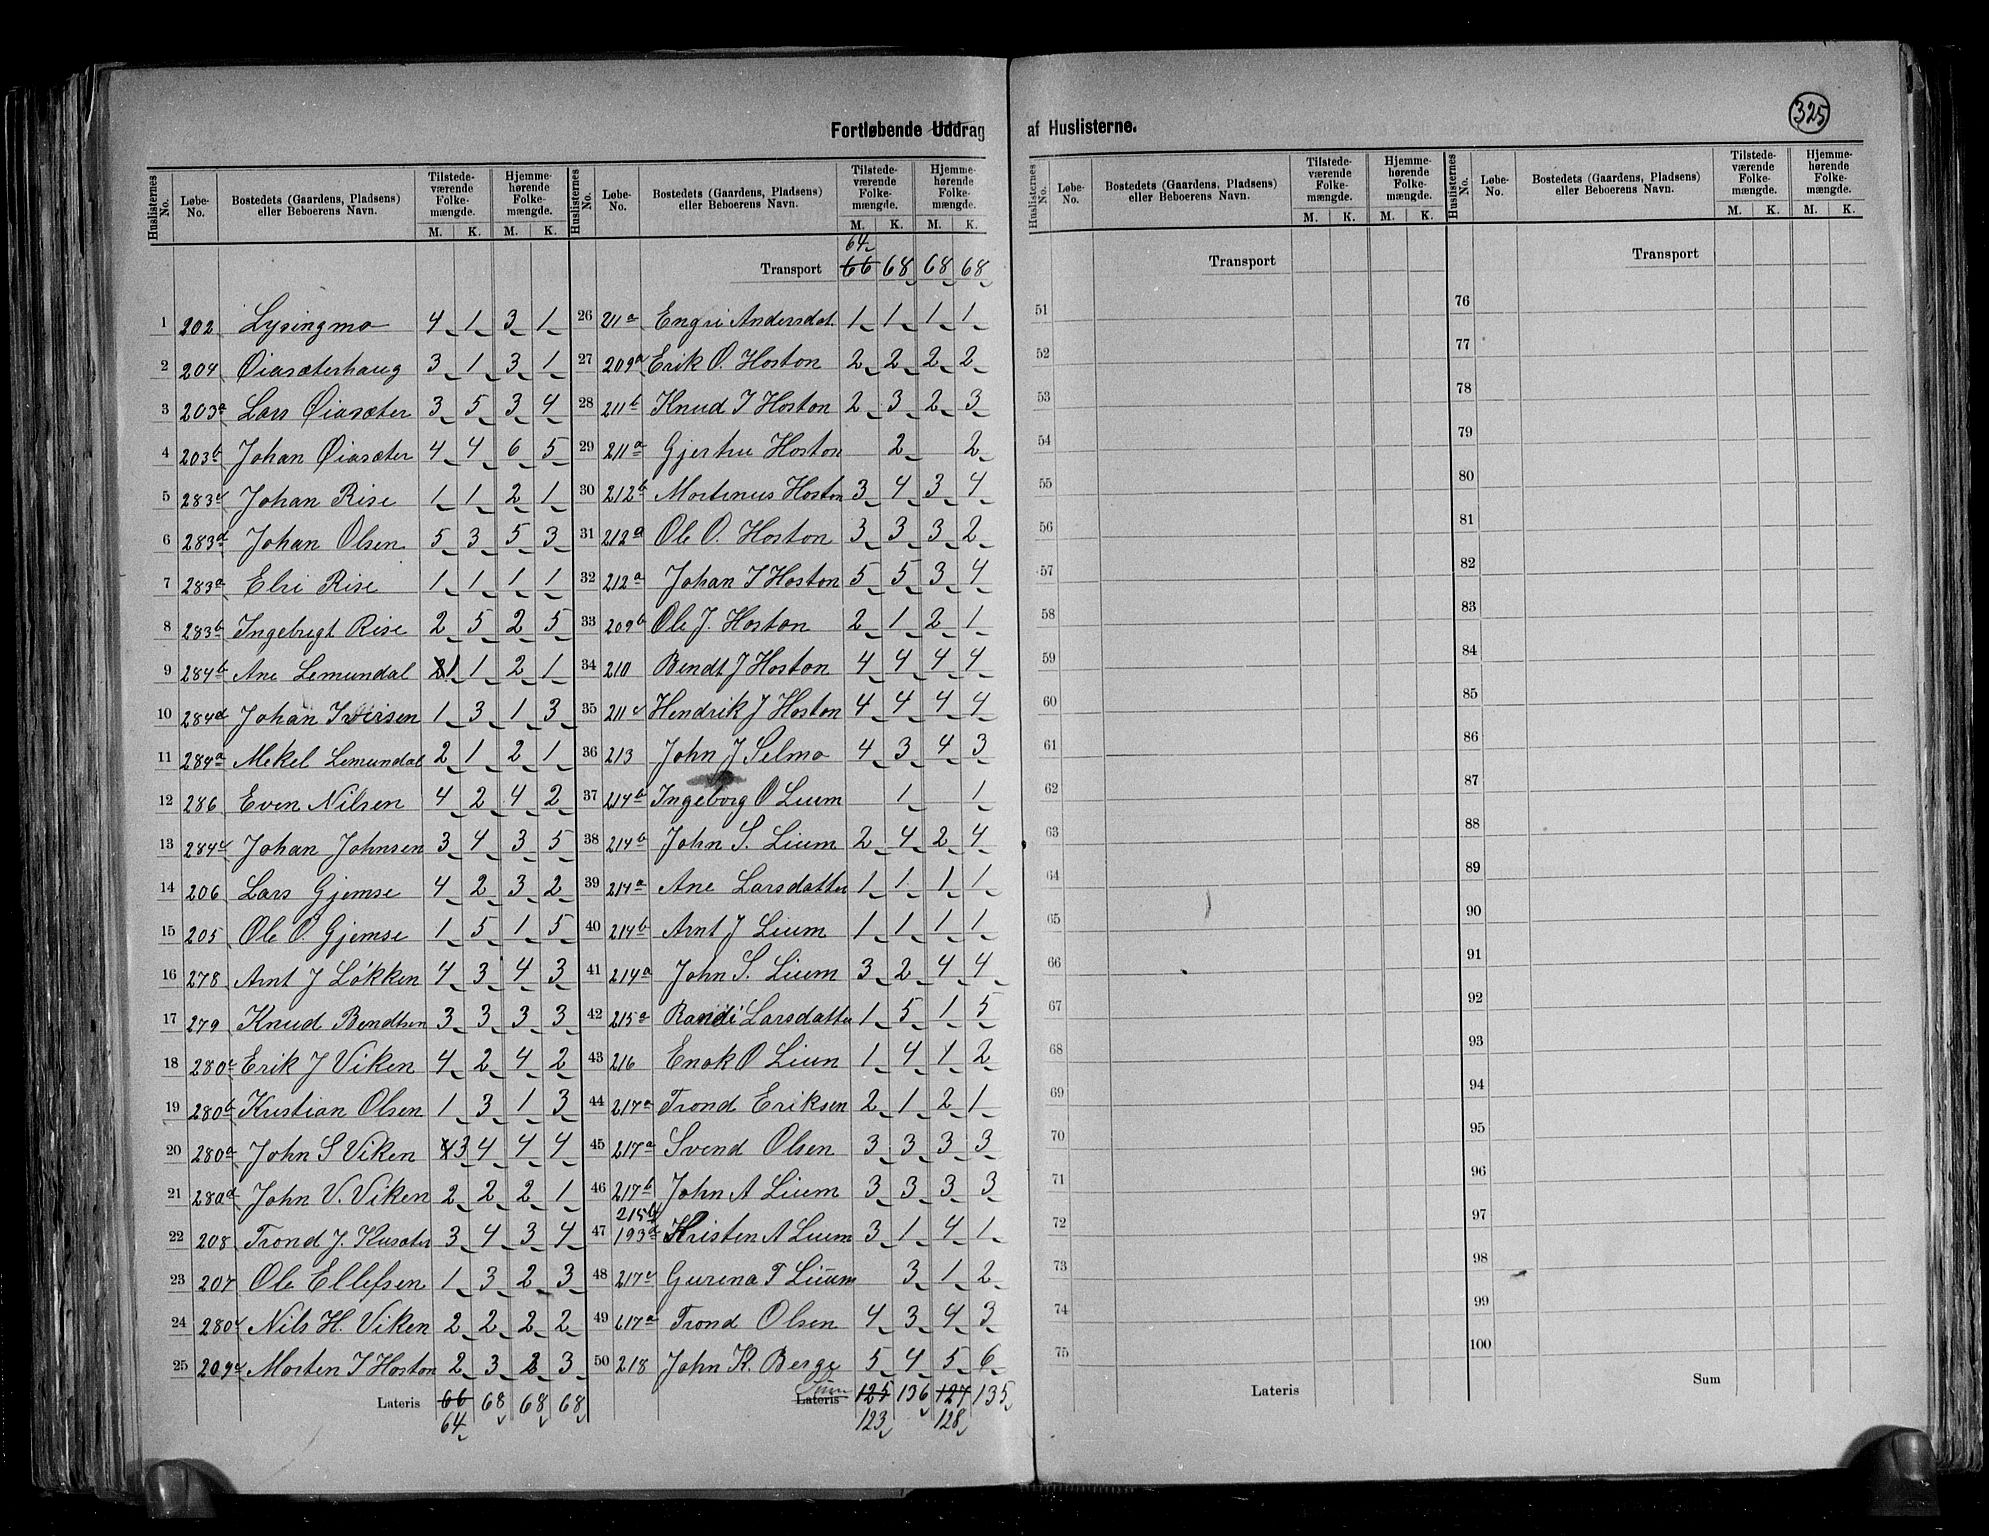 Fortløbende Uddrag af Huslisterne.
325
Huslisternes No. | Løbe-No. | Bostedets (Gaardens, Pladsens) eller Beboerens Navn. | Tilstedeværende Folkemængde. M. K. | Hjemmehørende Folkemængde. M. K.
1 202 Lysingmo 4 1 3 1
2 204 Øiasæterhaug 3 1 3 1
3 203a Lars Øiasæter 3 5 3 4
4 203b Johan Øiasæter 4 4 6 5
5 283c Johan Rise 1 1 2 1
6 283d Johan Olsen 5 3 5 3
7 283a Elsi Rise 1 1 1 1
8 283b Ingebrigt Rise 2 5 2 5
9 284b Ane Lemundal 1 1 2 1
10 284d Johan Iversen 1 3 1 3
11 284a Mekel Lemundal 2 1 2 1
12 286 Even Nilsen 4 2 4 2
13 284c Johan Johnsen 3 4 3 5
14 206 Lars Gjemse 4 2 3 2
15 205 Ole O. Gjemse 1 5 1 5
16 278 Arnt J Løkken 4 3 4 3
17 279 Knud Bendtsen 3 3 3 3
18 280c Erik J Viken 4 2 4 2
19 280b Kristian Olsen 1 3 1 3
20 280a John S Viken 4 3 4 4 4
21 280d John V. Viken 2 2 2 1
22 208 Trond J. Kusæter 3 4 3 4
23 207 Ole Ellefsen 1 3 2 3
24 280c Nils H. Viken 2 2 2 2
25 209c Morten I Hoston 2 3 2 3
Lateris 66 68 68 68
64
Huslisternes No. | Løbe-No. | Bostedets (Gaardens, Pladsens) eller Beboerens Navn. | Tilstedeværende Folkemængde. M. K. | Hjemmehørende Folkemængde. M. K.
64
Transport 66 68 68 68
26 211a Engri Andersdat. 1 1 1 1
27 209a Erik O. Hoston 2 2 2 2
28 211b Knud I Hoston 2 3 2 3
29 211a Gjertru Hoston 2 2
30 212b Mortinus Hoston 3 4 3 4
31 212a Ole O. Hoston 3 3 3 2
32 212a Johan I Hoston 5 5 3 4
33 209b Ole J. Hoston 2 1 2 1
34 210 Bendt J Hoston 4 4 4 4
35 211c Hendrik J Hoston 4 4 4 4
36 213 John J Selmo 4 3 4 3
37 214b Ingeborg O Lium 1 1
38 214b John S. Lium 2 4 2 4
39 214a Ane Larsdatter 1 1 1 1
40 214b Arnt J Lium 1 1 1 1
41 214a John S. Lium 3 2 4 4
42 215a Randi Larsdatter 1 5 1 5
43 216 Enok O Lium 1 4 1 2
44 217a Trond Eriksen 2 1 2 1
45 217a Svend Olsen 3 3 3 3
46 217b John A Lium 3 3 3 3
215b
47 193d Kristen A Lium 3 1 4 1
48 217c Gurena T Lium 3 1 2
49 617a Trond Olsen 4 3 4 3
50 218 John K. Berge 5 4 5 6
Sum
Lateris 125 136 127 135
123 128
Huslisternes No. | Løbe-No. | Bostedets (Gaardens, Pladsens) eller Beboerens Navn. | Tilstedeværende Folkemængde. M. K. | Hjemmehørende Folkemængde. M. K.
Transport
51
52
53
54
55
56
57
58
59
60
61
62
63
64
65
66
67
68
69
70
71
72
73
74
75
Lateris
Huslisternes No. | Løbe-No. | Bostedets (Gaardens, Pladsens) eller Beboerens Navn. | Tilstedeværende Folkemængde. M. K. | Hjemmehørende Folkemængde. M. K.
Transport
76
77
78
79
80
81
82
83
84
85
86
87
88
89
90
91
92
93
94
95
96
97
98
99
100
Sum